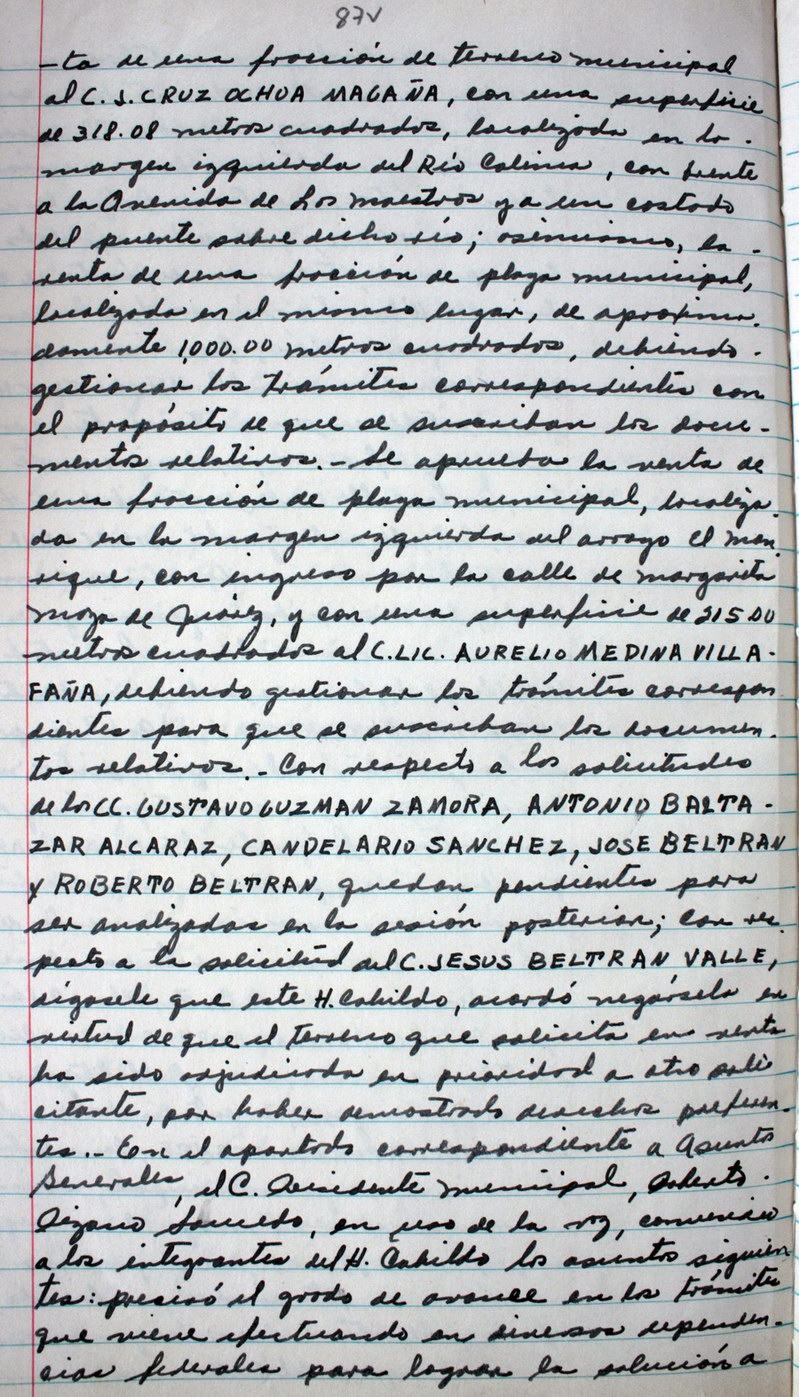 87v
-ta de una fracción de terreno municipal
al C. J. CRUZ OCHOA MAGAÑA, con una superficie
de 318.08 metros cuadrados, localizada en la -
margen izquierda del Río Colima, con frente
a la Avenida de Los Maestros y a un costado
del puente sobre dicho río; asimismo, la -
renta de una fracción de playa municipal,
localizada en el mismo lugar, de aproxima-
damente 1,000.00 metros cuadrados, debiendo -
gestionar los trámites correspondientes con
el propósito de que se suscriban los docu-
mentos relativos.- Se aprueba la renta de
una fracción de playa municipal, localiza-
da en la margen izquierda del arroyo El Man-
rique, con ingreso por la calle de Margarita
Maza de Juárez, y con una superficie de 315.00
metros cuadrados al C. LIC. AURELIO MEDINA VILLA-
FAÑA, debiendo gestionar los trámites correspon
dientes para que se suscriban los documen-
tos relativos.- Con respecto a las solicitudes
de los CC. GUSTAVO GUZMAN ZAMORA, ANTONIO BALTA-
ZAR ALCARAZ, CANDELARIO SANCHEZ, JOSE BELTRAN
y ROBERTO BELTRAN, quedan pendientes para
ser analizadas en la sesión posterior; con res-
pecto a la solicitud del C. JESUS BELTRAN VALLE,
dígasele que este H. Cabildo, acordó negársela en
virtud de que el terreno que solicita en venta
ha sido adjudicado en prioridad a otro soli
citante, por haber demostrado derechos preferen-
tes.- En el apartado correspondiente a Asuntos
Generales, el C. Presidente Municipal, Roberto -
en uso de la voz, comunicó
a los integrantes del H. Cabildo los asuntos siguien
tes: precisó el grado de avance en los trámites
que viene efectuando en diversas dependen-
cias federales para lograr la solución a